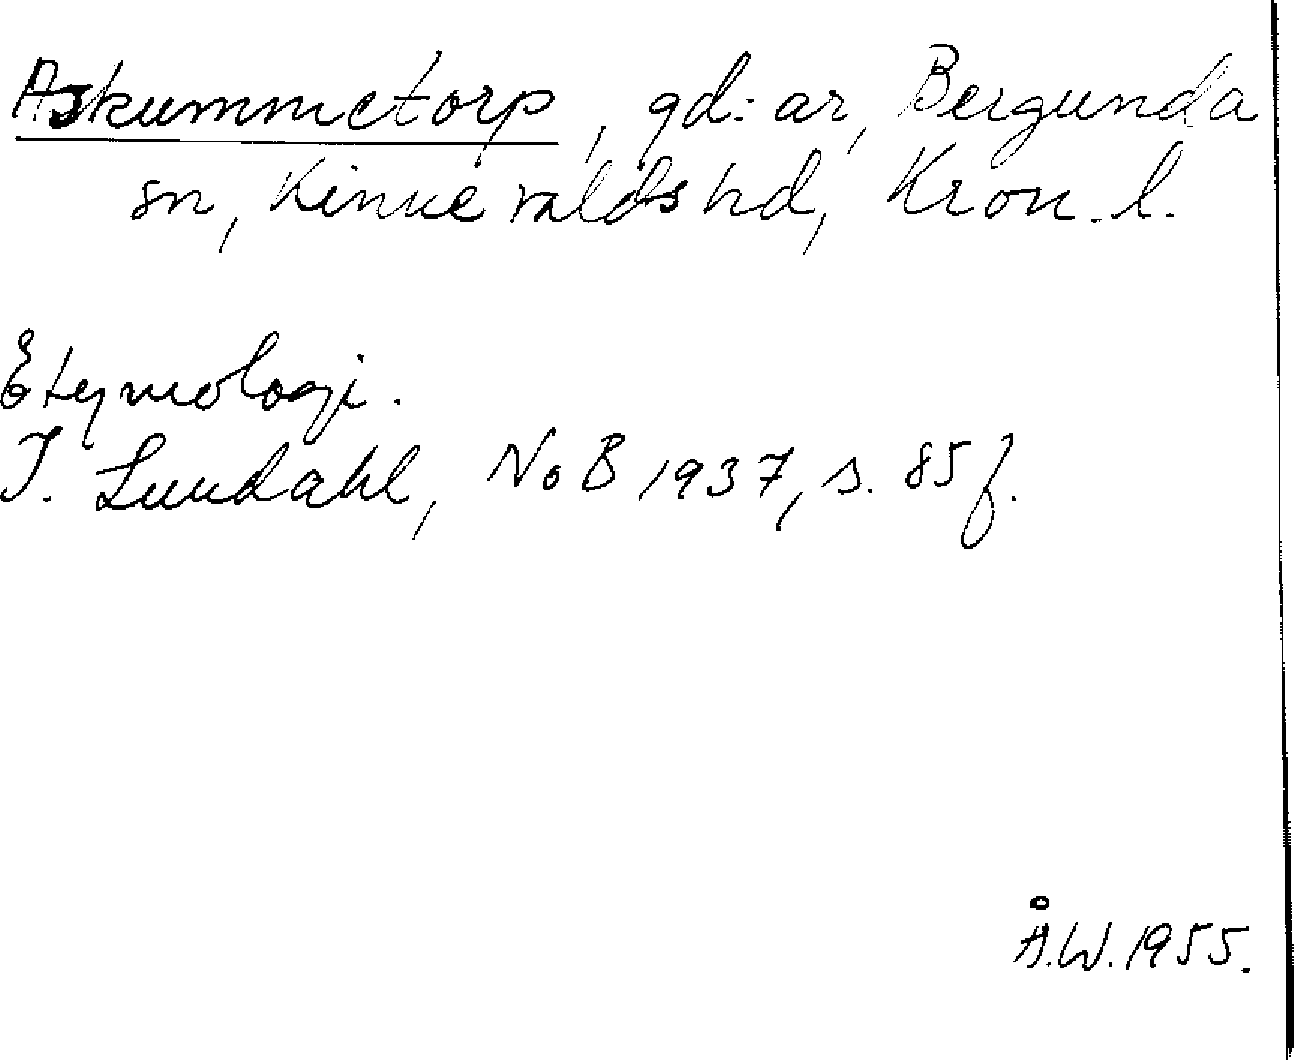 Askummetorp, gd:ar, Bergunda
sn, Kinnevalds hd, Kron. l.
Etymologi.
I. Lundahl, NoB 1937, s. 85 f.
Å.W. 1955.